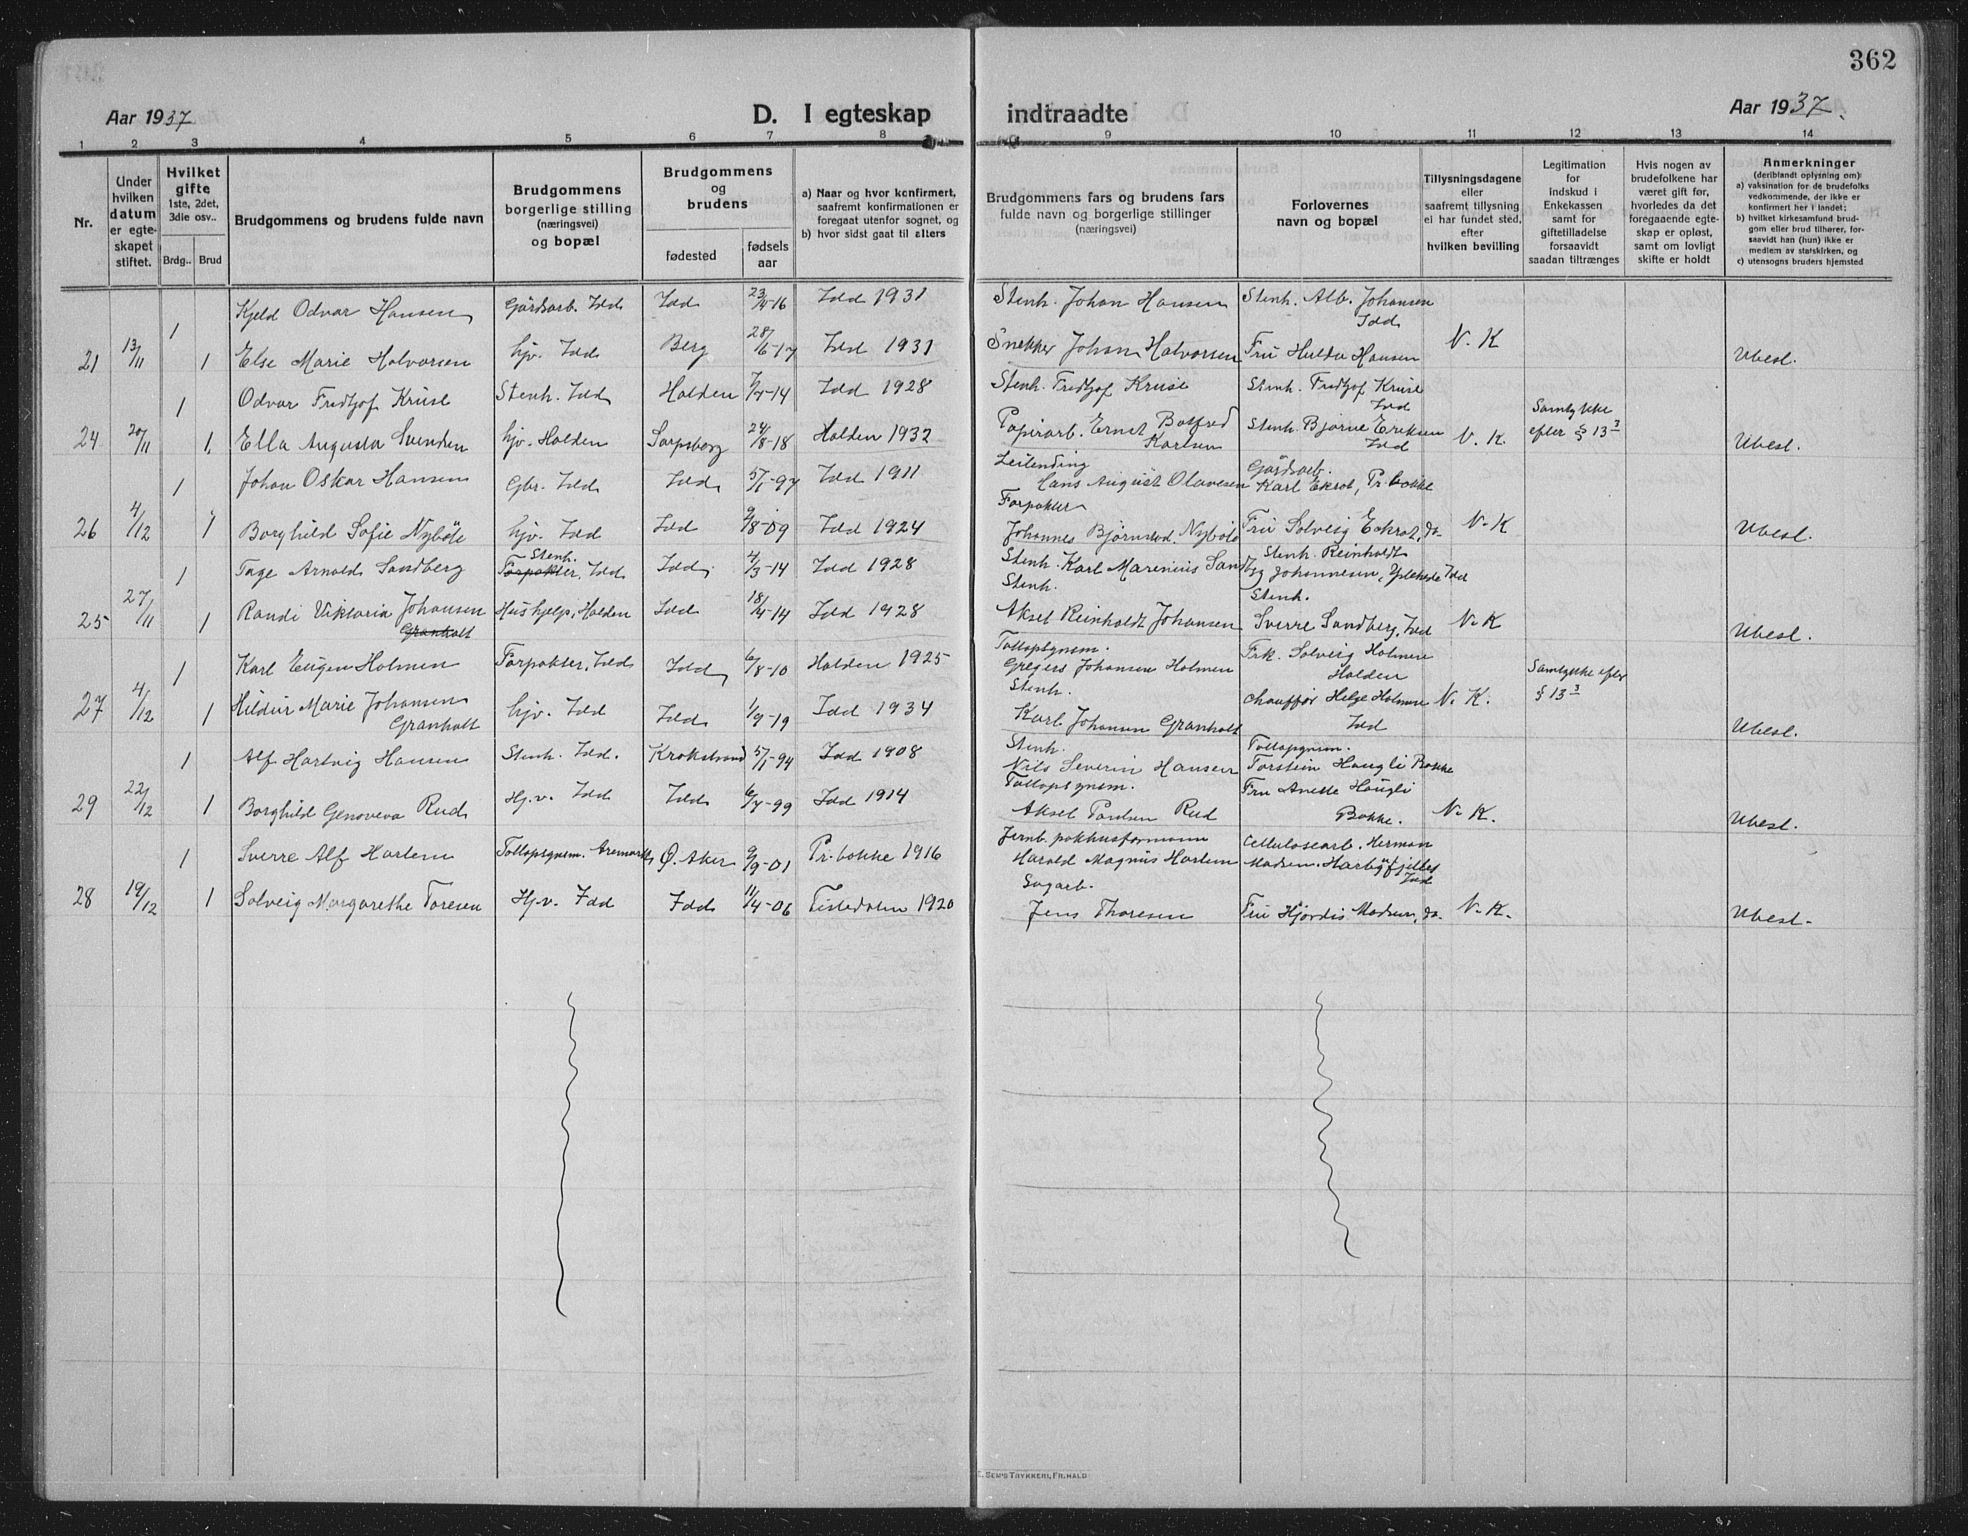 362
Aar 1937
D. I egteskap indtraadte
Aar 1937.
1 2 3 4 5 6 7 8 9 10 11 12 13 14
Nr.
Under hvilken datum er egteskapet stiftet.
Hvilket gifte 1ste, 2det, 3die osv..
Brdg.. Brud
Brudgommens og brudens fulde navn
Brudgommens borgerlige stilling (næringsvei) og bopæl
Brudgommens og brudens
fødested
fødsels aar
a) Naar og hvor konfirmert, saafremt konfirmationen er foregaat utenfor sognet, og
b) hvor sidst gaat til alters
Brudgommens fars og brudens fars fulde navn og borgerlige stillinger (næringsvei)
Forlovernes navn og bopæl
Tillysningsdagene eller saafremt tillysning ei har fundet sted, efter hvilken bevilling
Legitimation for indskud i Enkekassen samt for giftetilladelse forsaavidt saadan tiltrænges
Hvis nogen av brudefolkene har været gift før, hvorledes da det foregaaende egteskap er opløst, samt om lovligt skifte er holdt
Anmerkninger (deriblandt oplysning om):
a) vaksination for de brudefolks vedkommende, der ikke er konfirmert her i landet;
b) hvilket kirkesamfund brudgom eller brud tilhører, forsaavidt han (hun) ikke er medlem av statskirken, og
c) utensogns bruders hjemsted
1 Kjeld Odvar Hansen Gårdsarb. Idd Idd 23/4-16 Idd 1931 Stenh. Johan Hansen Stenh. Alb. Johansen Idd
21 13/11 1 Else Marie Halvorsen hjv. Idd Berg 28/6-17 Idd 1931 Snekker Johan Halvorsen Fru Hulda Hansen N. K Ubesl.
1 Odvar Fredtjof Kruse Stenh. Idd Halden 7/4-14 Idd 1928 Stenh. Fredtjof Kruse Stenh. Fredtjof Kruse Idd
24 20/11 1. Ella Augusta Svendsen hjv. Halden Sarpsborg 24/8-18 Halden 1932 Papirarb. Ernst Botfred Karlsen Stenh. Bjarne Eriksen Idd N. K. Samtykke efter § 13³ Ubesl.
1 Johan Oskar Hansen Gbr. Idd Idd 5/1-97 Idd 1911 Leilending Hans August Olavesen Gårdsarb. Karl Ekrot, Pr. bakke
26 4/12 1 Borghild Sofie Nybøle hjv. Idd Idd 9/8-09 Idd 1924 Forpakter Johannes Bjørnstad Nybøle Fru Solveig Eckrot, do- N. K Ubesl.
1 Tage Arnold Sandberg Forpakter, Stenh. Idd Idd 4/3-14 Idd 1928 Stenh. Karl Marenius Sandbg Stenh. Reinholdt Johannesen, Idd
25 27/11 1 Randi Viktoria Johansen Granholt Hushjelp, Halden Idd 18/4-14 Idd 1928 Stenh. Aksel Reinholdt Johansen Stenh. Sverre Sandberg, Idd N. K Ubesl.
1 Karl Eugen Holmen Forpakter, Idd Idd 6/8-10 Halden 1925 Tollopsynsm. Gregers Johansen Holmen Frk. Solveig Holmen Halden
27 4/12 1 Hildur Marie Johansen Granholt hjv. Idd Idd 1/9-19 Idd 1934 Stenh. Karl Johansen Granholt Chauffør Helge Holmen Idd N. K. Samtykke efter § 13³ Ubesl.
1 Alf Hartvig Hansen Stenh. Idd. Krokstrand 5/1-94 Idd 1908 Stenh. Nils Severin Hansen Tollopsynsm. Torstein Haugli Bakke
29 22/12 1 Borghild Genoveva Rud Hj.v. Idd Idd 6/7-99 Idd 1914 Tollopsynsm. Aksel Paulsen Rud Fru Anette Haugli Bakke. N. K. Ubesl.
1 Sverre Alf Harlem Tollopsynsm. Aremark Ø. Aker 9/9-01 Pr.bakke 1916 Jernb. pakhusformann Harald Magnus Harlem Cellulosearb. Herman Madsen, Idd
28 19/12 1 Solveig Margarethe Toresen Hj.v. Idd Idd 11/4-06 Tistedalen 1920 Sagarb. Jens Thoresen Fru Hjørdis Madsen, do- N. K. Ubesl.
E. SEM'S TRYKKERI, FR.HALD